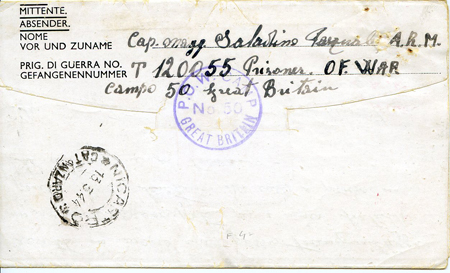 MITTENTE.
ABSENDER.
NOME
VOR UND ZUNAME
Cap. magg. Saladino Pasquale A.R.M.
PRIG. DI GUERRA NO.
GEFANGENENNUMMER
T 120055 Prisoner. OF. WAR
Campo 50 Great Britain
P.O.W. CAMP
No 50
GREAT BRITAIN
NICASTRO
CATANZARO
44